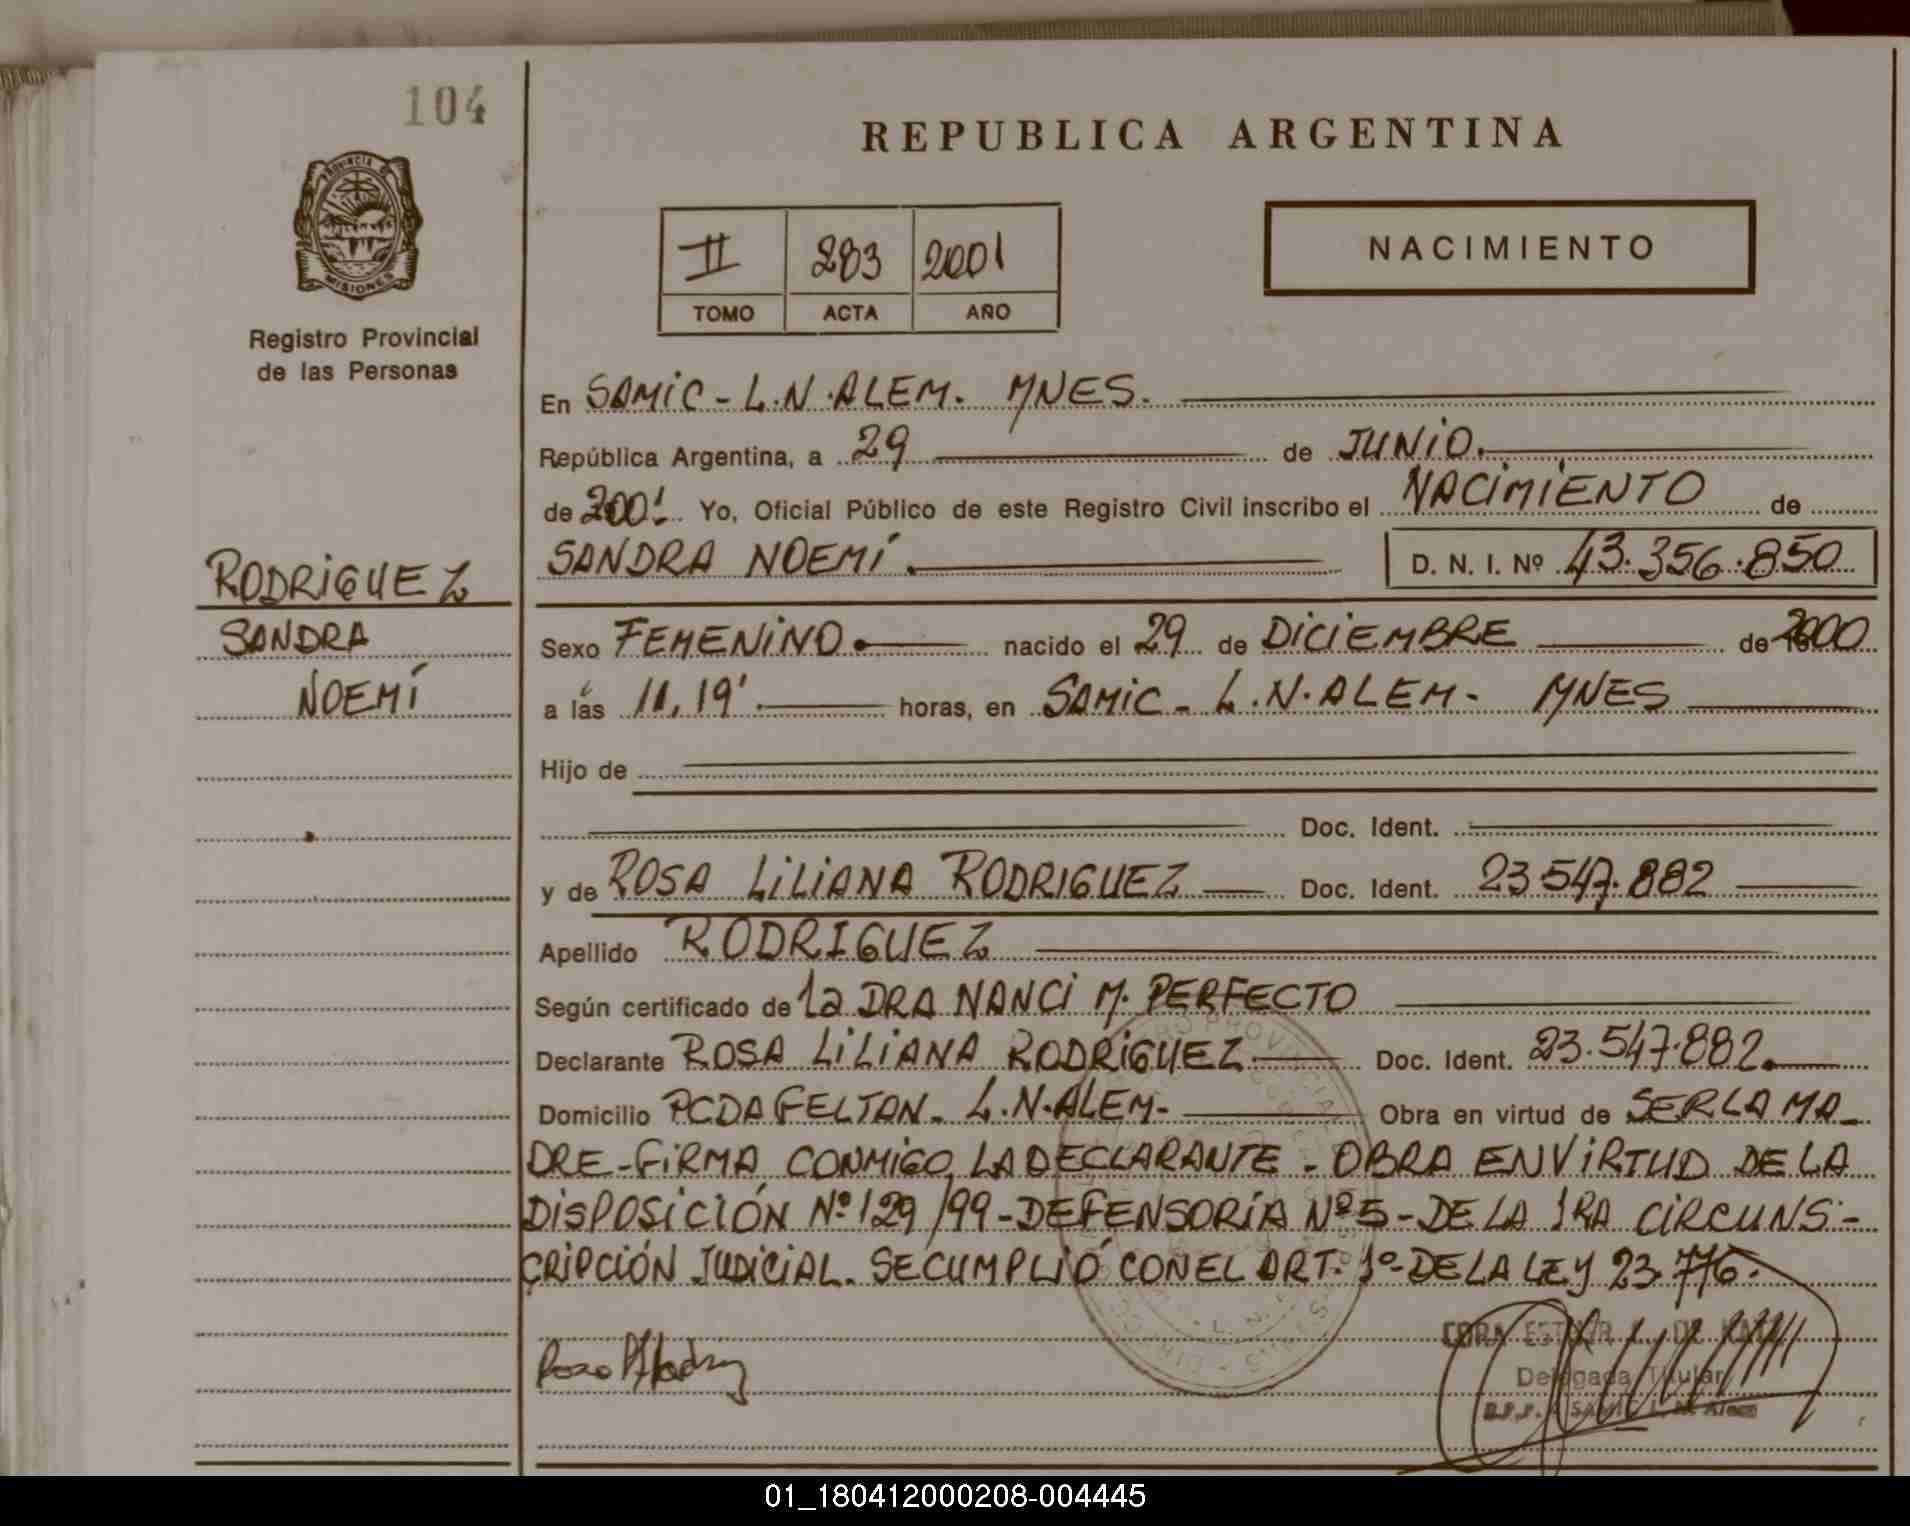 104
REPUBLICA ARGENTINA
PROVINCIA DE
MISIONES
II 283 2001
TOMO ACTA AÑO
NACIMIENTO
Registro Provincial
de las Personas
En SAMIC - L.N. ALEM. MNES.
República Argentina, a 29 de JUNIO.
de 2001 Yo, Oficial Público de este Registro Civil inscribo el NACIMIENTO de
SANDRA NOEMÍ. D. N. I. Nº 43.356.850
RODRIGUEZ
SANDRA
NOEMÍ
Sexo FEMENINO. nacido el 29 de DICIEMBRE de 2000
a las 11,19' horas, en SAMIC - L.N. ALEM - MNES
Hijo de
Doc. Ident.
y de ROSA LILIANA RODRIGUEZ Doc. Ident. 23.547.882
Apellido RODRIGUEZ
Según certificado de la DRA NANCI M. PERFECTO
Declarante ROSA LILIANA RODRIGUEZ Doc. Ident. 23.547.882.
Domicilio PCDA FELTAN - L.N. ALEM - Obra en virtud de SER LA MA-
DRE - FIRMA CONMIGO, LA DECLARANTE - OBRA EN VIRTUD DE LA
DISPOSICIÓN Nº 129/99 - DEFENSORÍA Nº 5 - DE LA 1RA CIRCUNS-
CRIPCIÓN JUDICIAL. SE CUMPLIÓ CON EL ART. 1º DE LA LEY 23.776.
Delegada Titular
01_180412000208-004445